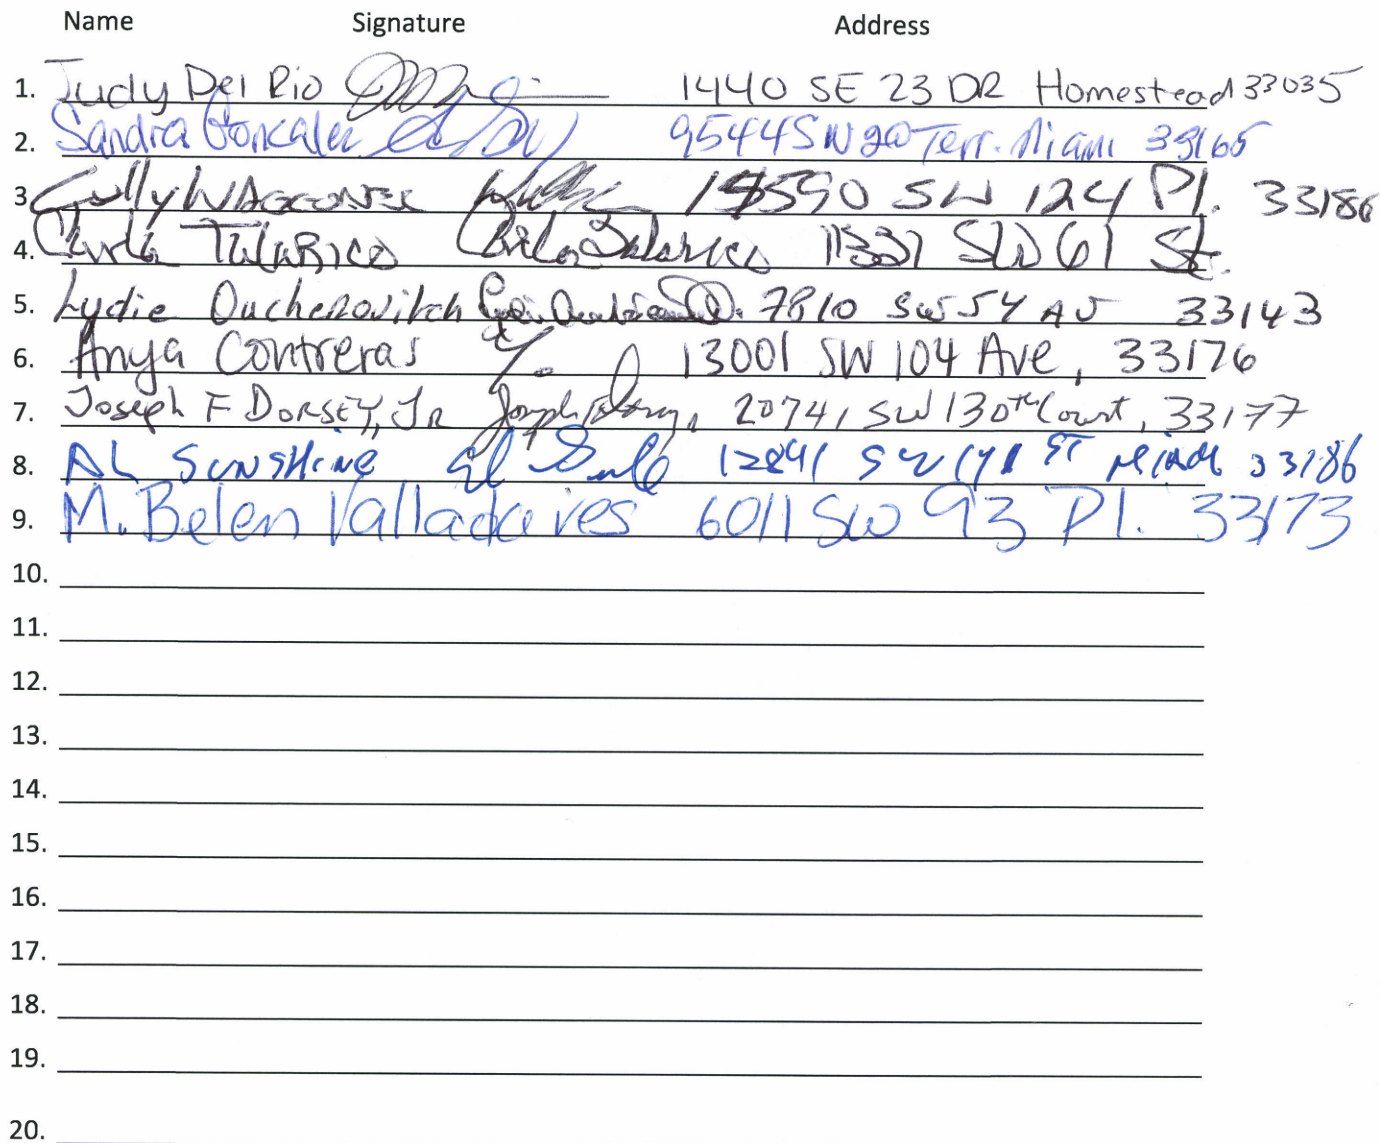 Name Signature Address
1. Judy Del Rio 1440 SE 23 DR Homestead 33035
2. Sandra Gonzalez 9544 SW 20 Terr. Miami 33165
3. WAGGONER SW 124 Pl. 33186
4. Carla TalaRico Carla Talarico 11331 SW 61 St.
5. Lydie Ouchenovitch 7810 SW 54 AV 33143
6. Anya Contreras 13001 SW 104 Ave, 33176
7. Joseph F DORSEY, JR 20741 SW 130th Court, 33177
8. AL SUNSHiNE SW ST Miami 33186
9. M. Belen Valladares 6011 SW 93 Pl. 33173
10.
11.
12.
13.
14.
15.
16.
17.
18.
19.
20.